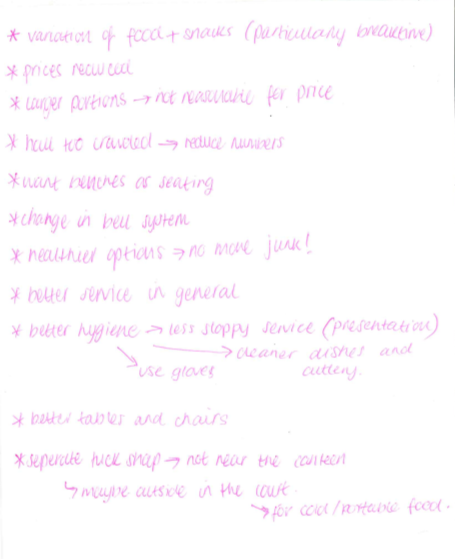 * variation of food + snacks (particularly breaktime)
* prices reduced
* larger portions → not reasonable for price
* hall too crowded → reduce numbers
* want benches as seating
* change in bell system
* healthier options → no more junk!
* better service in general
* better hygiene → less sloppy service (presentation)
→ cleaner dishes and
→ use gloves cutlery.
* better tables and chairs
* seperate tuck shop → not near the canteen
↳ maybe outside in the court.
→ for cold/portable food.